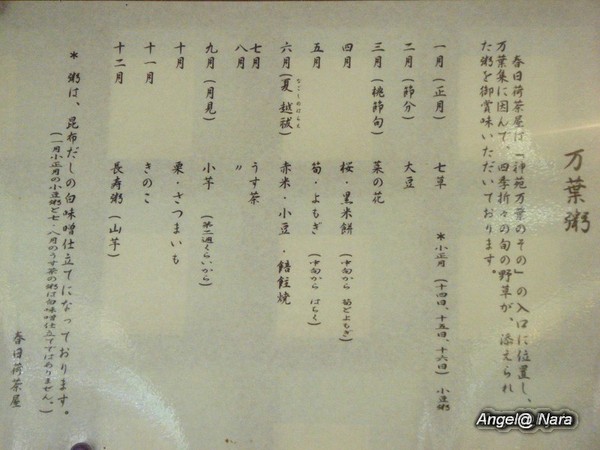 万葉粥
春日荷茶屋は「神苑万葉のその」の入口に位置し、
万葉集に因んで、四季折々の旬の野草が、添えられ
た粥を御賞味いただいております。
一月(正月) 七草 *小正月(十四日、十五日、十六日)小豆粥
二月(節分) 大豆
三月(桃節句) 菜の花
四月 桜・黒米餅(中旬から 菊とよもぎ)
五月 筍・よもぎ(中旬から はちく)
六月(夏越祓) 赤米・小豆・餢飳焼
なごしのはらえ
七月 うす茶
八月 〃
九月(月見) 小芋(第二週くらいから)
十月 栗・さつまいも
十一月 きのこ
十二月 長寿粥(山芋)
*粥は、昆布だしの白味噌仕立てになっております。
(一月小正月の小豆粥と七・八月のうす茶の粥は白味噌仕立てではありません。)
春日荷茶屋
Angel@ Nara